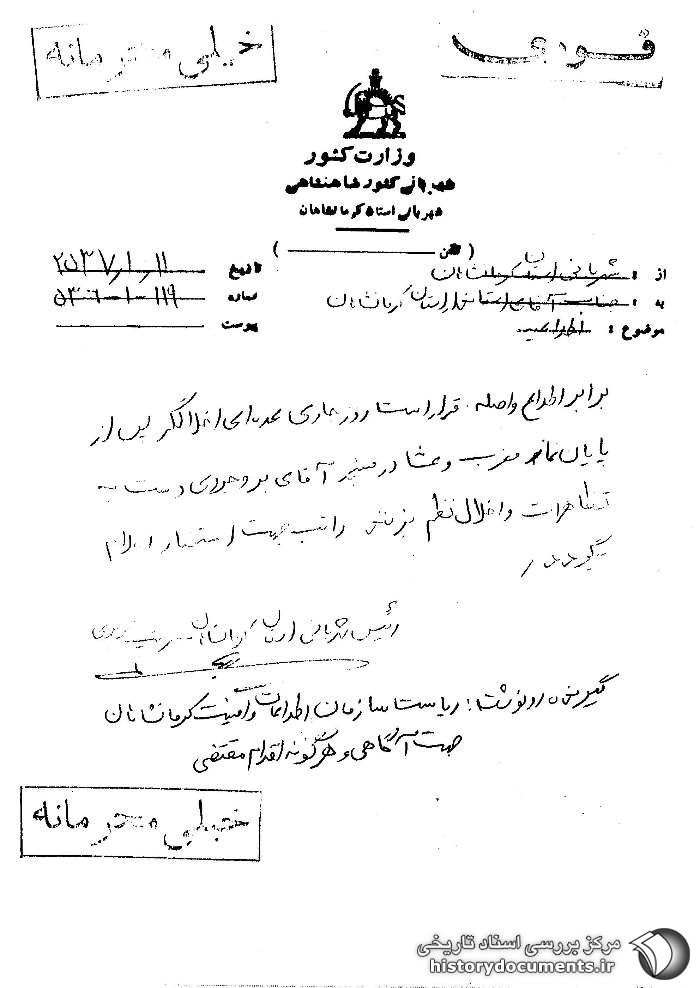 خیلی محرمانه
فوری
وزارت کشور
شهربانی کشور شاهنشاهی
شهربانی استان کرمانشاهان
از : شهربانی استان کرمانشاهان ( تلفن )
به : جناب آقای استاندار استان کرمانشاهان
موضوع : اطلاعیه
تاریخ ۲۵۳۷/۱/۱۱
شماره ۵۳-۶-۱-۱۱۹
پیوست
برابر اطلاع واصله قرار است روز جاری عده‌ای اخلالگر پس از
پایان نماز مغرب و عشا در مسجد آقای بروجردی دست به
تظاهرات و اخلال نظم بزنند مراتب جهت استحضار اعلام
میگردد /
رئیس شهربانی استان کرمانشاهان سرتیپ
گیرنده رونوشت : ریاست سازمان اطلاعات و امنیت کرمانشاهان
جهت آگاهی و هرگونه اقدام مقتضی
خیلی محرمانه
مرکز بررسی اسناد تاریخی
historydocuments.ir